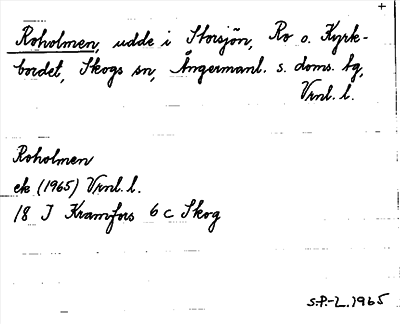 +
Roholmen, udde i Storsjön, Ro o. Kyrk-
bordet, Skogs sn, Ångermanl. s. doms. tg,
Vrnl. l.
Roholmen
ek (1965) Vrnl. l.
18 J Kramfors 6 c Skog
S.P.-L. 1965